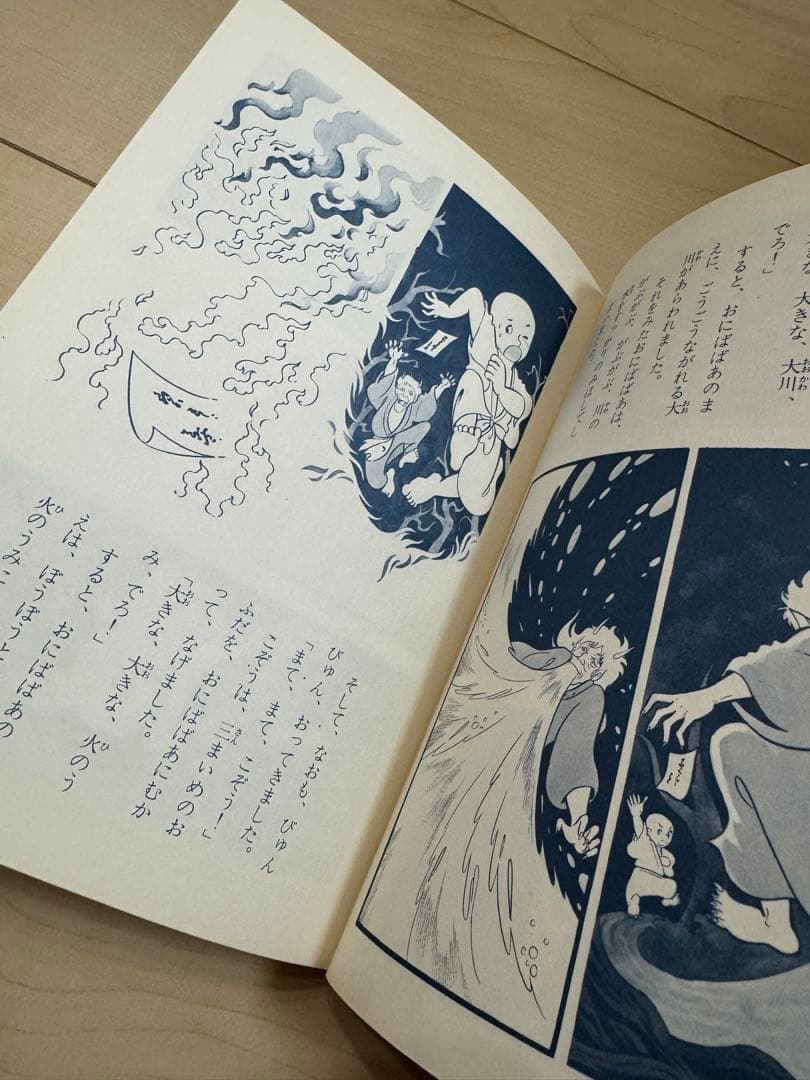 大きな、大川、
でろ！」
すると、おにばばあのま
えに、ごうごうながれる大
川があらわれました。
それをみたおにばばあは、
がぶがぶ、がぶがぶ、川の
かりのみほしてし
そして、なおも、びゅん
びゅん、おってきました。
「まて、まて、こぞう！」
こぞうは、三まいめのお
ふだを、おにばばあにむか
って、なげました。
「大きな、大きな、火のう
み、でろ！」
すると、おにばばあの
えは、ぼうぼうと
火のうみ